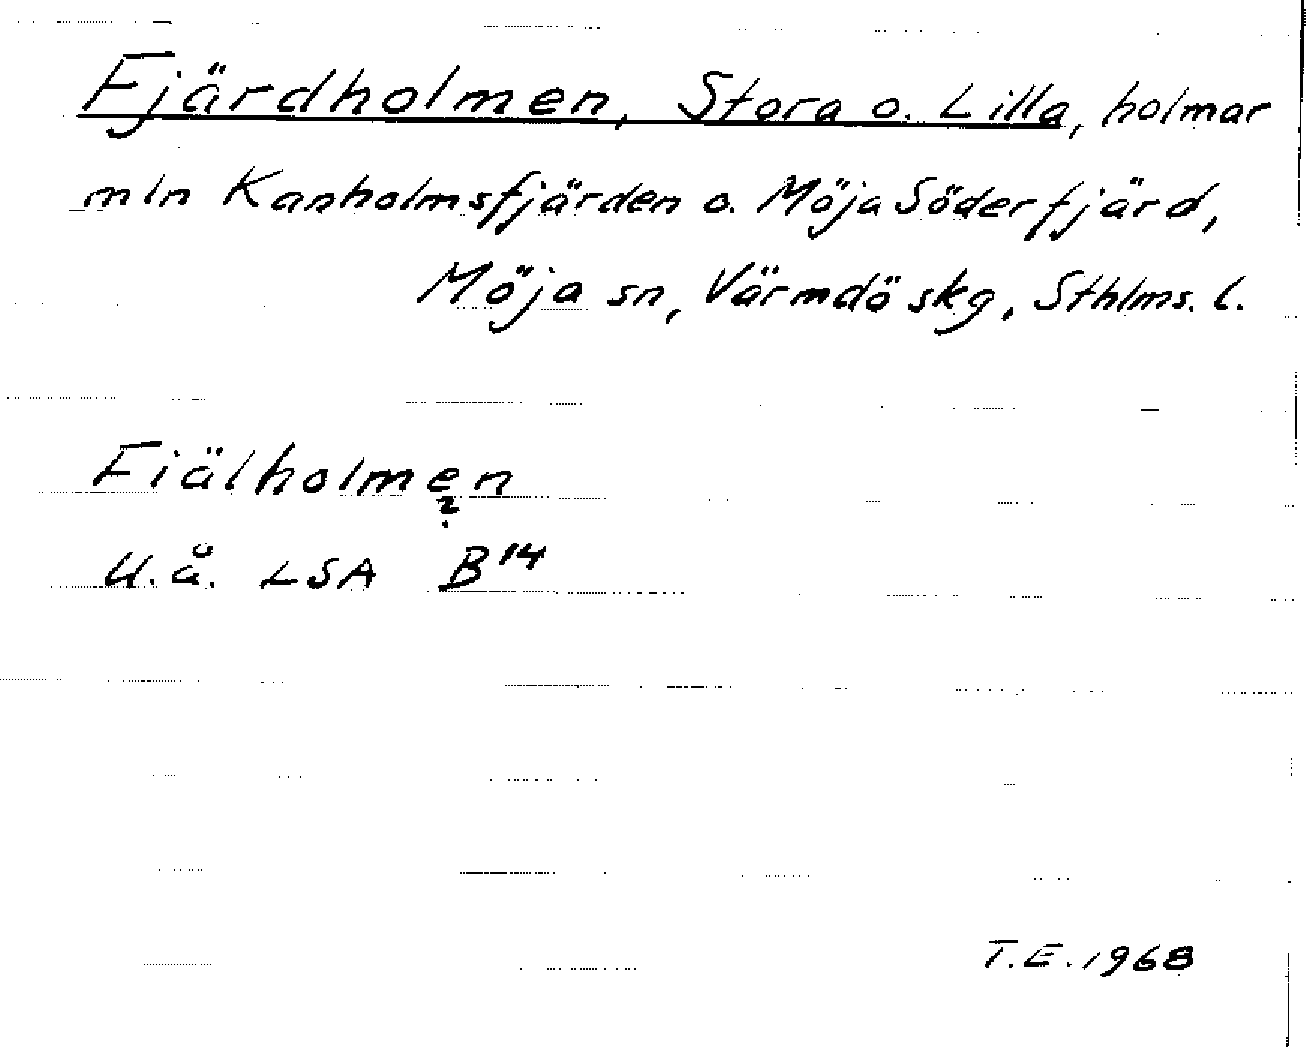 Fjärdholmen, Stora o. Lilla, holmar
mln Kanholmsfjärden o. Möja Söderfjärd,
Möja sn, Värmdö skg, Sthlms. l.
Fiälholmen
?
U.å. LSA B14
T.E. 1968